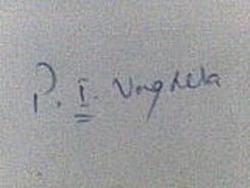 P. I. Vaghela